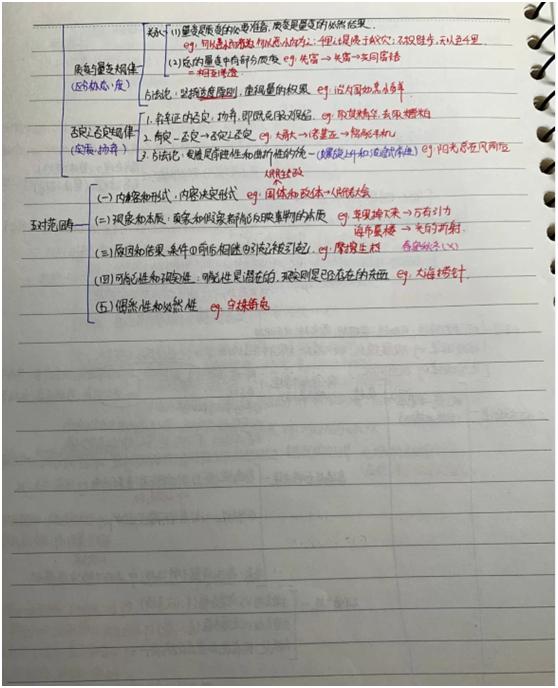 关系 (1)量变是质变的必要准备,质变是量变的必然结果.
(2)总的量变中有部分质变
=相互渗透
质量与量变规律
(区分标志:度)
方法论:坚持适度原则,重视量的积累
1.辩证的否定,扬弃,即既克服又保留. eg:取其精华,去其糟粕
否定之否定规律
(实质:扬弃)
2.肯定—否定→否定之否定 eg:大哥大→诺基亚→智能手机
3.方法论:发展是前进性和曲折性的统一(螺旋上升和波浪式前进) eg:阳光总在风雨后
人民民主专政
(一)内容和形式:内容决定形式 eg:国体和政体→人民代表大会
五对范畴
(二)现象和本质:真象和假象都能反映事物的本质 eg:苹果掉下来→万有引力
海市蜃楼→光的折射.
(三)原因和结果 条件①前后相继②引起被引起. eg:摩擦生热 春夏秋冬(×)
(四)可能性和现实性:可能性是潜在的,现实则是已经存在的东西 eg:大海捞针
(五)偶然性和必然性 eg:守株待兔